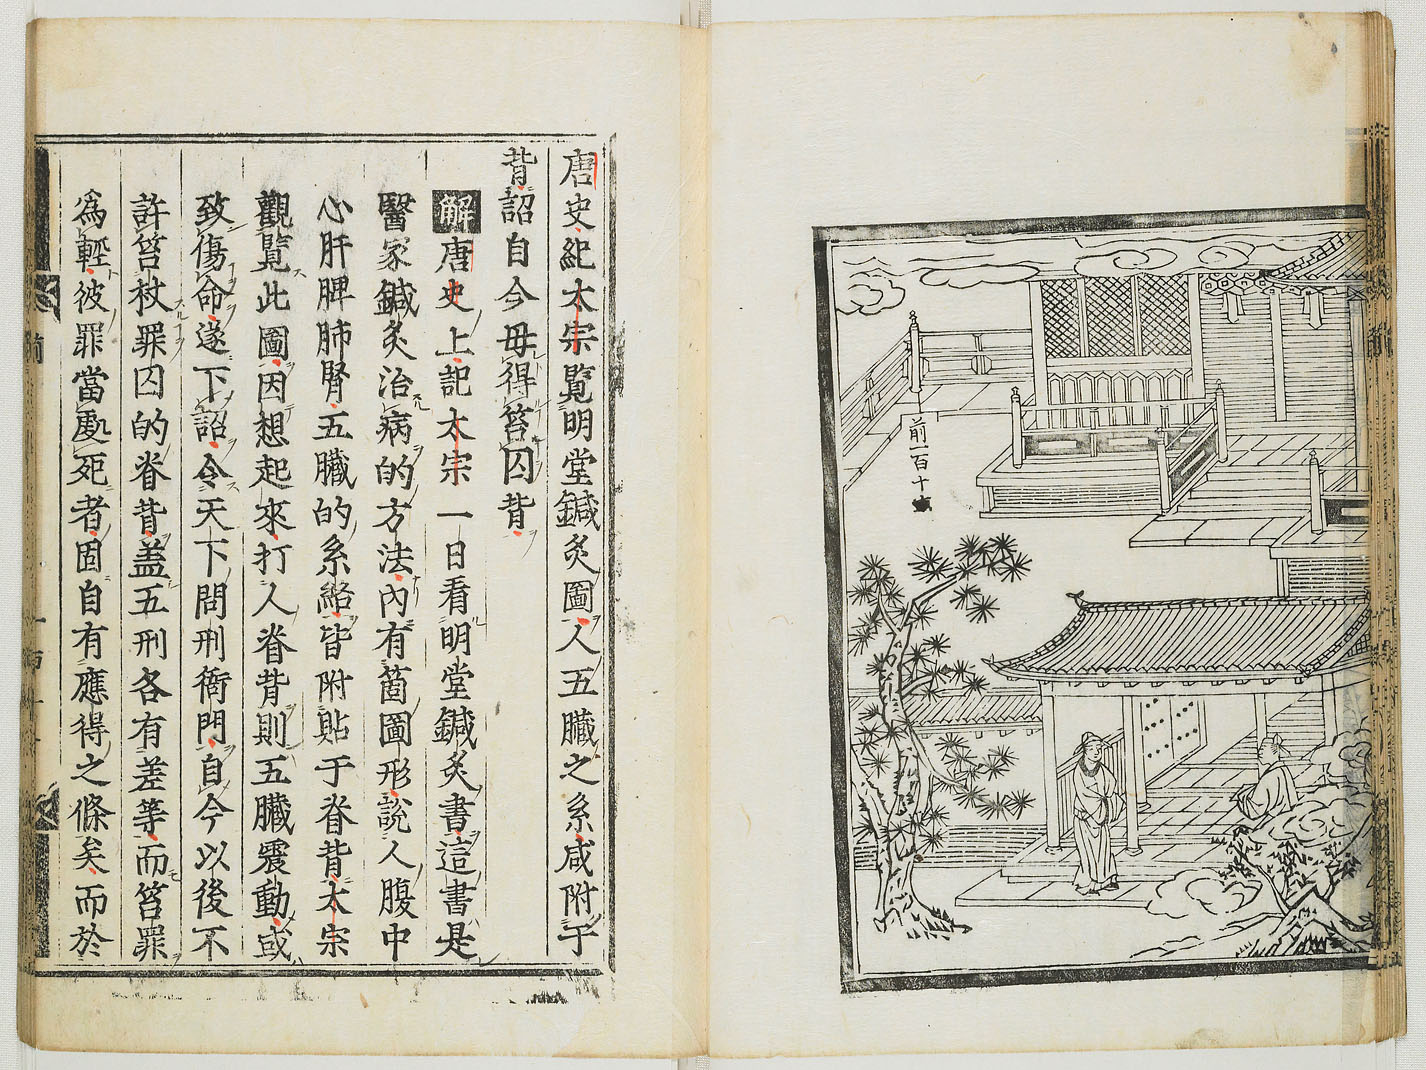 前一百十
唐史紀太宗覽明堂鍼灸圖人五臟之系咸附于
背詔自今毋得笞囚背
解唐史上記太宗一日看明堂鍼灸書這書是
醫家鍼灸治病的方法內有箇圖形說人腹中
心肝脾肺腎五臟的系絡皆附貼于脊背太宗
觀覽此圖因想起來打人脊背則五臟震動或
致傷命遂下詔令天下問刑衙門自今以後不
許笞杖罪囚的脊背盖五刑各有差等而笞罪
為輕彼罪當處死者固自有應得之條矣而於